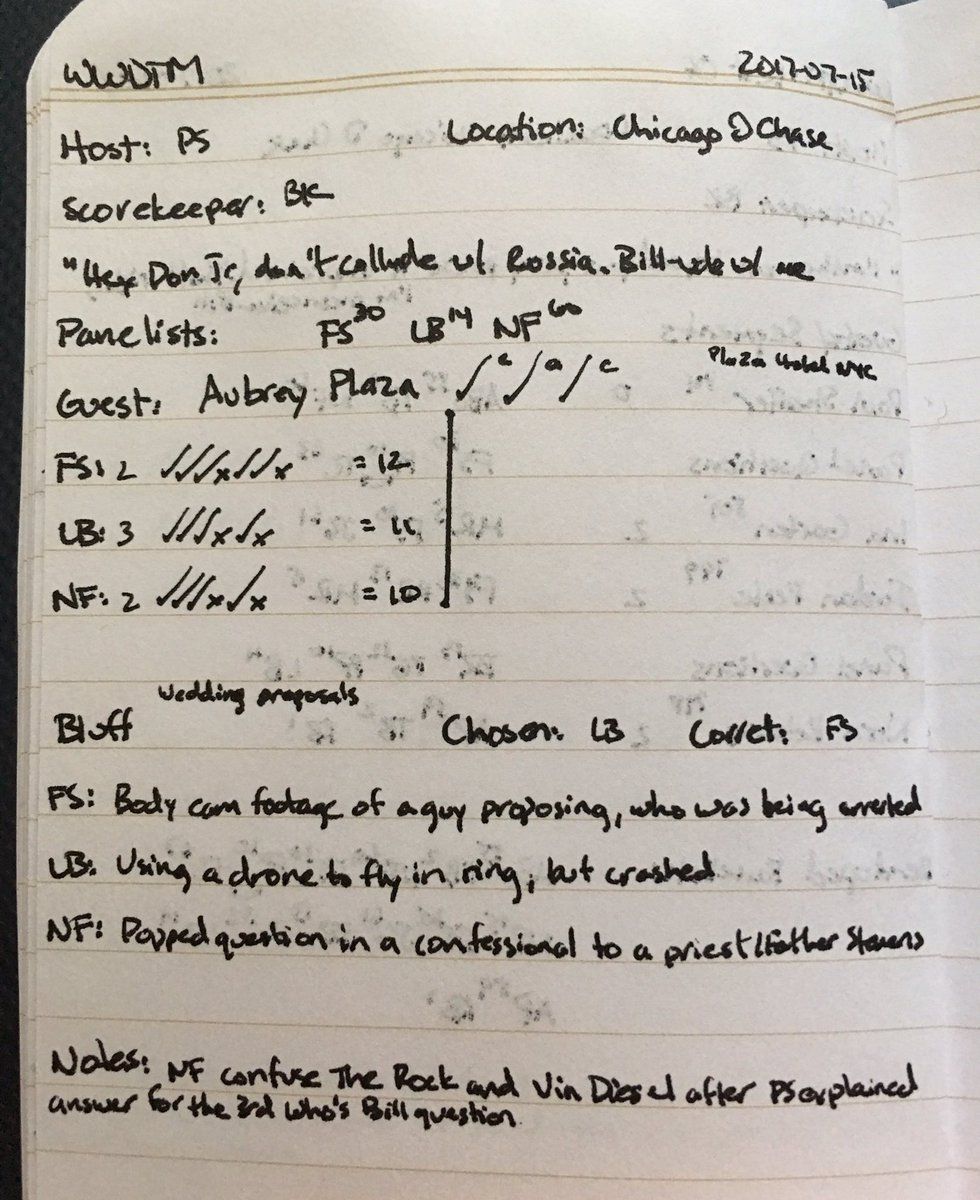 WWDTM 2017-07-15
Host: PS Location: Chicago @ Chase
Scorekeeper: BK
"Hey Don Jr, don't collude w/ Russia. Bill-ude w/ me
Panelists: FS 30 LB 14 NF 60
Guest: Aubrey Plaza ✓c ✓a ✓c Plaza Hotel NYC
FS: 2 ✓✓✓x✓✓x = 12
LB: 3 ✓✓✓x✓x = 11
NF: 2 ✓✓✓x✓x = 10
wedding proposals
Bluff Chosen: LB Corret: FS
FS: Body cam footage of a guy proposing, who was being arrested
LB: Using a drone to fly in ring, but crashed
NF: Popped question in a confessional to a priest/father Stevens
Notes: NF confuse The Rock and Vin Diesel after PS explained
answer for the 3rd Who's Bill question.